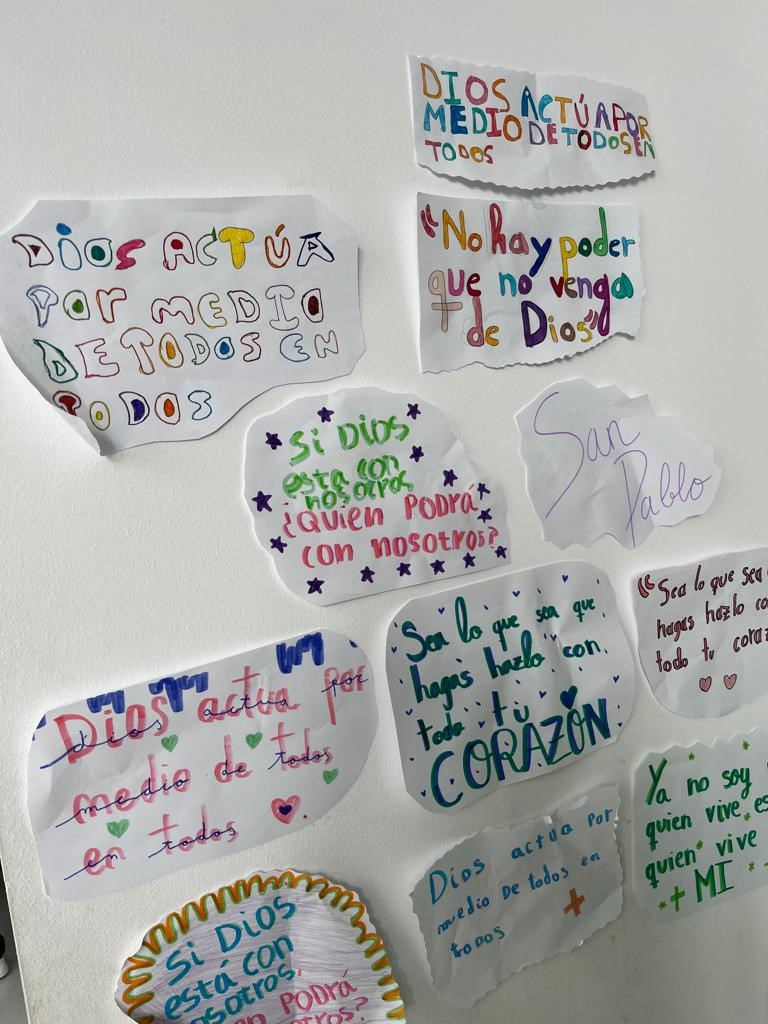 DIOS ACTÚA POR
MEDIO DE TODOS EN
TODOS
"No hay poder
que no venga
de Dios"
DIOS ACTÚA
POR MEDIO
DE TODOS EN
TODOS
Si DIOS
esta con
nosotros
¿QUIEN PODRÁ
con nosotros?
San
Pablo
Sea lo que sea que
hagas hazlo con
todo tú
CORAZÓN
"Sea lo que sea
hagas hazlo
todo tu
Dios actua por
medio de todos
en todos
Ya no soy
quien vive
quien vive
MI
Dios actua por
medio De todos en
todos
Si Dios
está con
PODRÁ